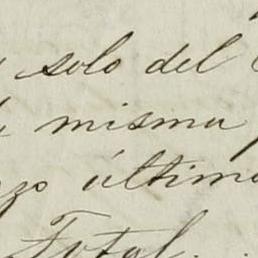 solo del
misma
último
Total